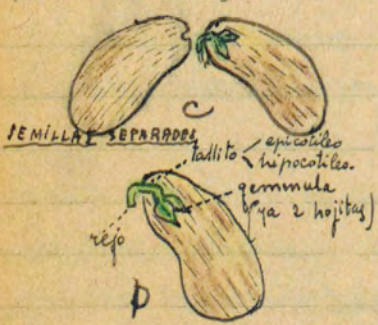 C
SEMILLAS SEPARADOS
tallito epicotileo
hipocotileo.
gemmula
(ya 2 hojitas)
rejo
D